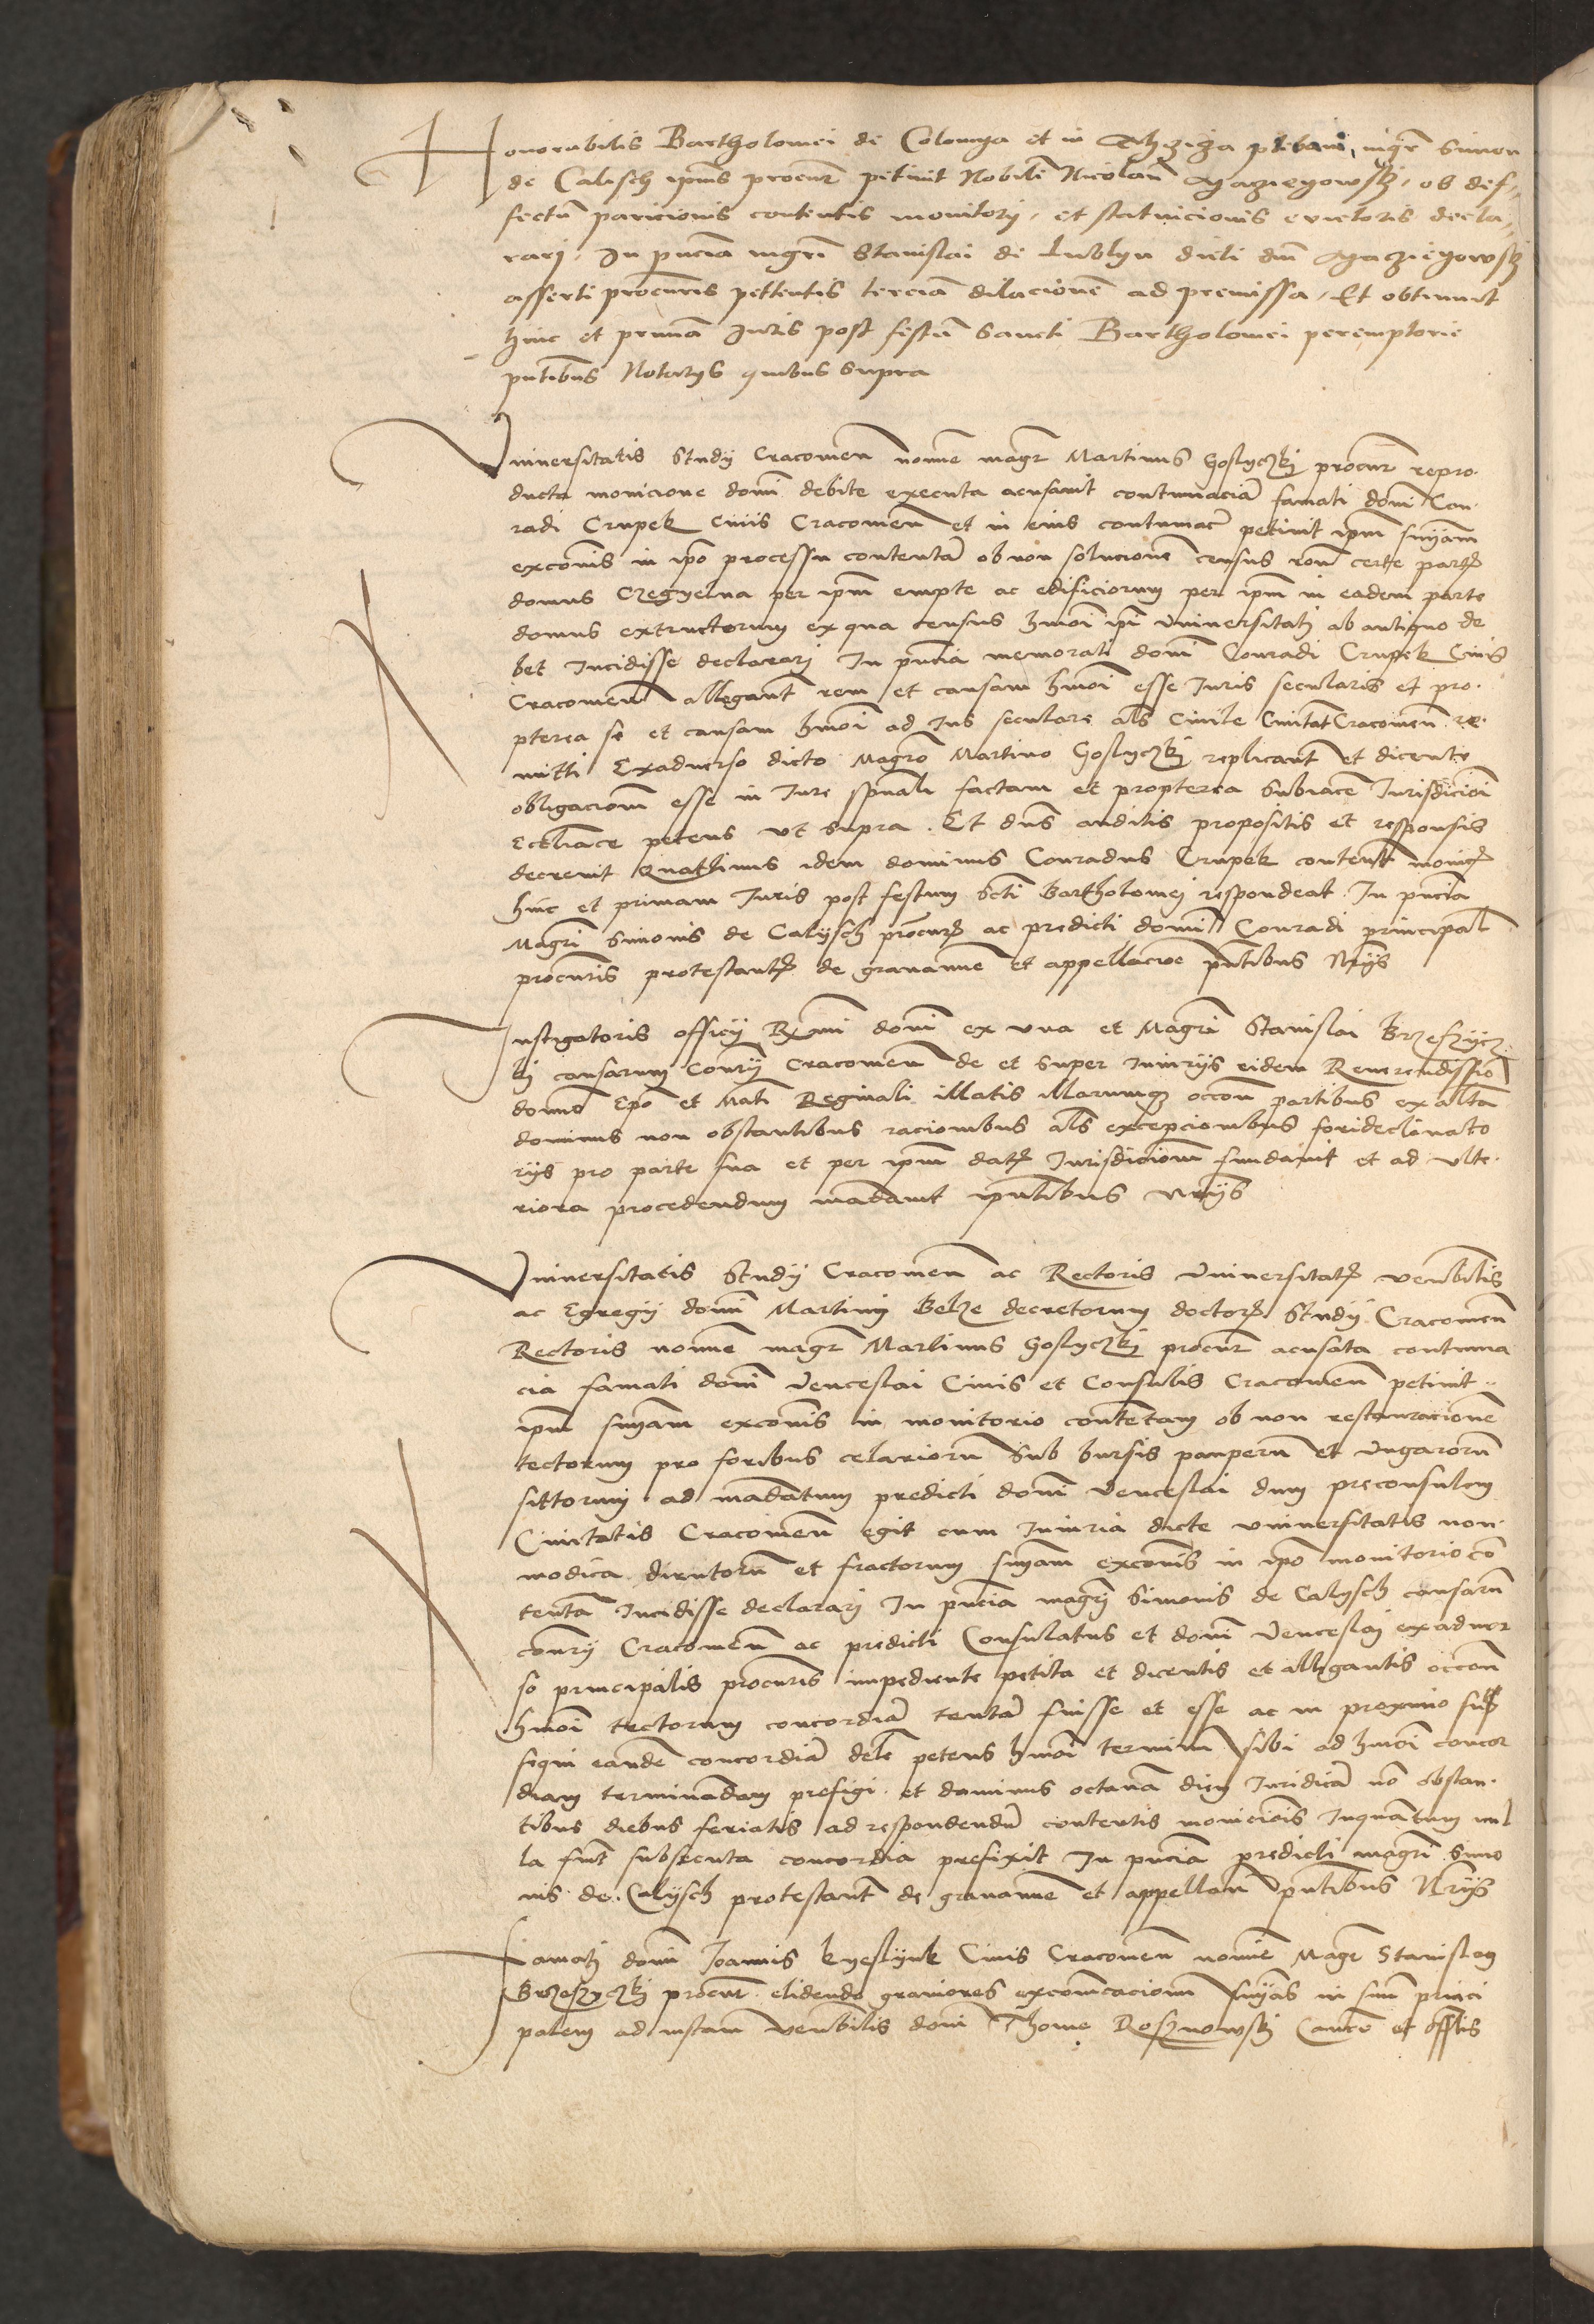 Honorabilis Bartholomei de Colomya et in plebani, mgr̃ Simon
de Calisch ipius procur̃ petiuit Nobilẽ Nicolaũ ob def,,
fectũ paricionis contentis monitorij, et statuicionis euictoris decla,,
rarj, In pñcia mgrĩ Stanislai de Lublyn dicti dnĩ
asserti procurris pettentis terciã dilacionẽ ad premissa, Et obtinuit
hinc et primã Juris post festũ Sancti Bartholomei peremptorie
pñtibus Notarijs quibus supra
Vniuersitatis Studij Cracouieñ nomine magr̃ Martinus Goslyczkj procur̃ repro-
ducta monicione domĩ debite executa acusauit contumaciã famati domĩ Con-
radi Crupek ciuis Cracouieñ et in eius contumacĩa petiuit ipm̃ snỹam
excõnis in ipo processu contentã ob non solucionẽ census roñe certe partis
domus Czegyelna per ipm̃ empte ac edificiorum per ipm̃ in eadem parte
domus extructorum ex qua census hmõi ipi Vniuersitatj ab antiquo de
bet Incidisse declararj In pñcia memorati domĩ Conradi Crupek Ciuis
Cracouieñ allegant̃ rem et causam hmõi esse Juris secularis et pro-
pterea se et causam hmõi ad Jus seculare als Ciuile Ciuitat̃ Cracouieñ re-
mitti Exaduerso dicto Magrõ Martino Goslyczkj replicant̃ et dicente
obligacionẽ esse in Jure spũali factam et propterea subiacere Jurisdicioni
Eccliastice petens vt supra. Et dns auditis propositis et responsis
decreuit Quathinus idem dominus Conradus Crupek contentis monicionis
hinc et primam Juris post festum Scti Bartholomej respondeat In pñcia
Magrĩ Simonis de Calysch procuris ac predicti domĩ Conradi principal
procurris protestantis de grauamine et appellacioe pñtibus Nrijs
Instigatoris officij Rmi domĩ ex vna et Magrĩ Stanislai Brzeszycz
kj causarum Conrij Cracouieñ de et super Iniurijs eidem Reuerendissimo
domino Epo et Mati Reginali illatis illarumque occoñe partibus ex altera
dominus non obstantibus racionibus als excepcionibus forideclinato
rijs pro parte sua et per ipm̃ datis Jurisdicionem fundauit et ad vlte-
riora procedendum mandauit pñtibus Nrijs
Vniuersitatis Studij Cracouieñ ac Rectoris Vniuersitatis venerbilis
ac Egregij domĩ Martinj Belze decretorum doctoris Studij Cracouieñ
Rectoris nomine magr̃ Martinus Goslyczkj procur̃ acusata contuma
cia famati domĩ Venceslai Ciuis et Consulis Cracouieñ petiuit
ipm̃ snỹam excõnis in monitorio contentam ob non restauracionẽ
tectorum pro foribus celariorũ Sub bursis pauperũ et Vngarorũ
sittorum ad mandatum predicti domĩ Venceslai dum preconsulem
Ciuitatis Cracouieñ egit cum Iniuria dicte vniuersitatis non
modica dirutorũ et fractorum snỹam excõnis in ipo monitorio cõ
tentã Incidisse declararj In pñcia magrj Simonis de Calysch causarũ
conrij Cracouieñ ac predicti Consulatus et domĩ Venceslaj exaduer
so principalis procurris impediente petita et dicentis et allegantis occoñe
hmõi tectorum concordiã tentã fuisse et esse ac in proximo sub
sequi eandẽ concordiã debere petens hmõi terminũ sibi ad hmõi concor
diam terminandam prefigi et dominus octauã diem Juridicã nõ obstan-
tibus diebus feriatis ad respondendũ contentis monicionis Inquantum nul
la fuerit subsecuta concordia prefixit In pñcia predicti magrĩ Simo
nis de Calysch protestant̃ de grauamine et appellan̄ pñtibus Nrijs
Famatj domĩ Joannis kyeslynk Ciuis Cracouieñ nomine Magr̃ Stanislaus
Brzeszyczkj procur̃ elidendo grauiores excõmcacionũ snỹas in suũ princi
palem ad instan̄ venerbilis domĩ Thome Rosznowskj Canci et offlis